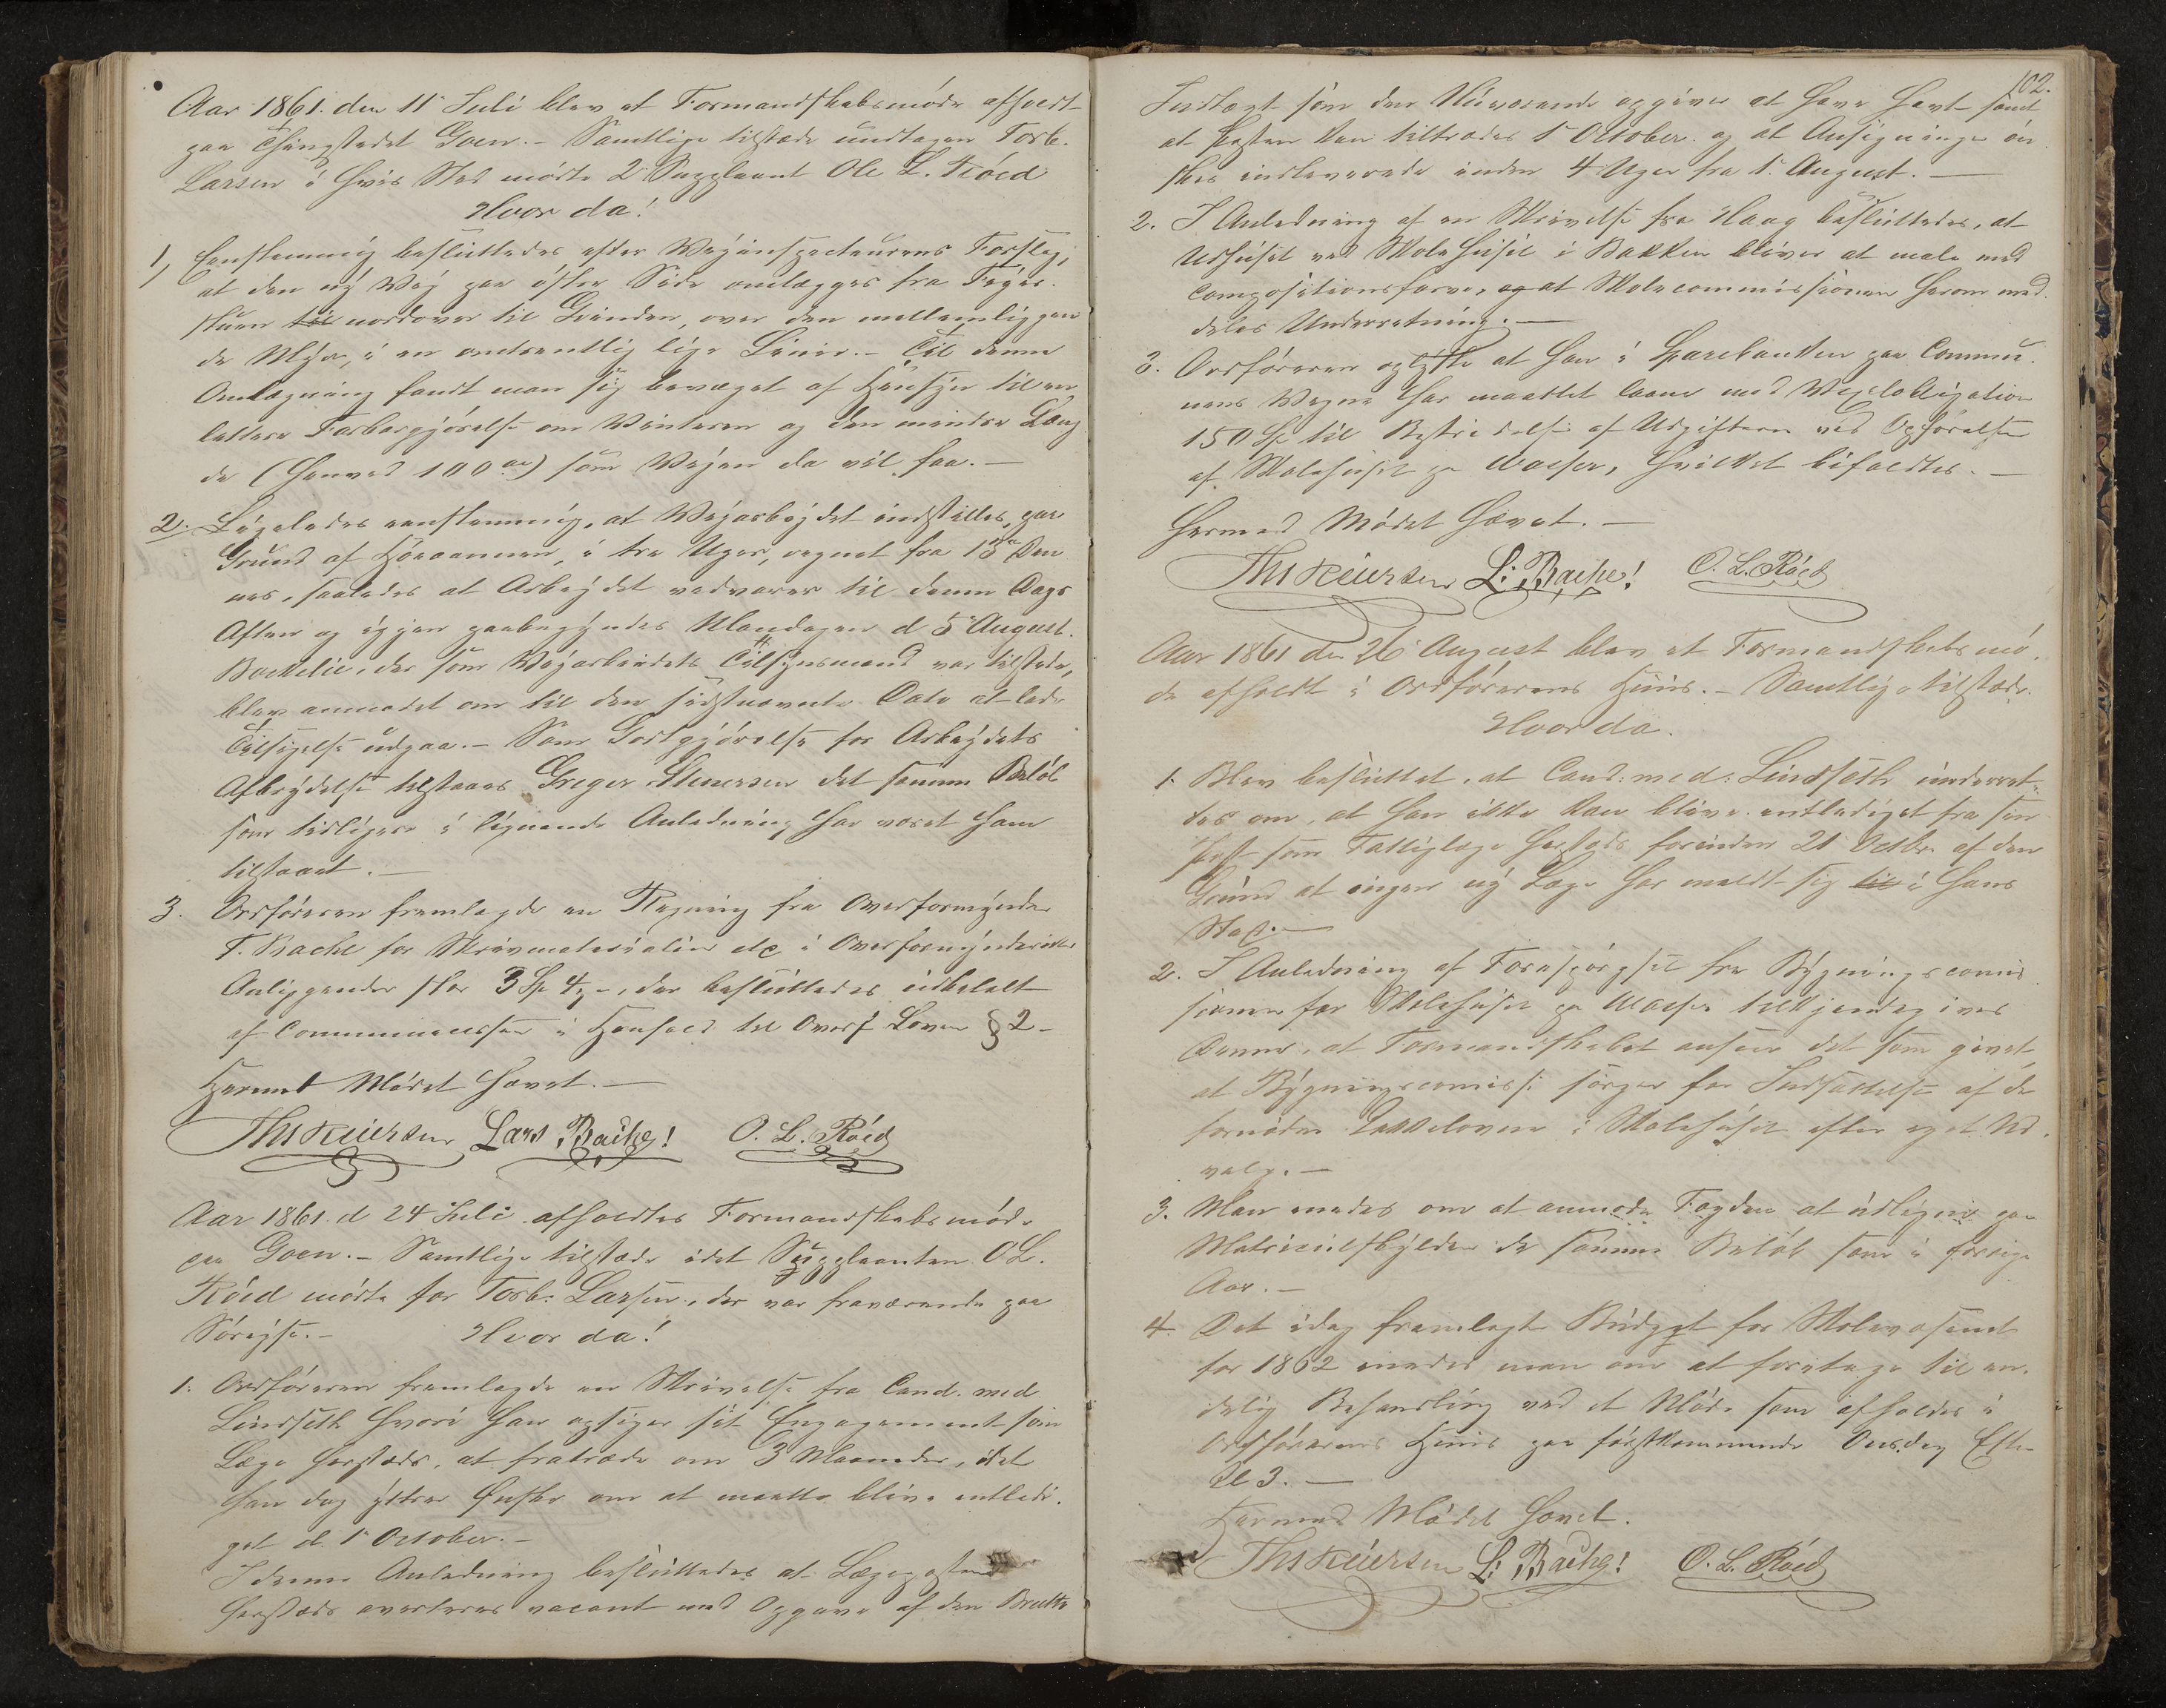 Aar 1861. den 11te Juli blev et Formandskabsmöde afholdt
paa Thingstedet Goen. - Samtlige tilstæde undtagen Torb.
Larsen i hvis Sted mödte 2 Suppleant Ole L. Röed
Hvor da!
1, Eenstemmig besluttedes, efter Vejinspecteurens Forslag,
at den ny Vej paa östre Side omlægges fra
stuen til nordover til Grinden, over den mellemliggen
de Myr, i en omtrentlig lige Linie. - Til denne
Omlægning fandt man sig bevæget af Hensyn til en
lettere Farbargjörelse om Vinteren og den mindre Læng
de (henved 100 al) som Vejen da vil faa. -
2. Ligeledes eenstemmig, at Vejarbejdet indstilles, paa
Grund af Höeaannen, i tre Uger, regnet fra 13de Den
nes, saaledes at Arbejdet vedvarer til denne Dags
Aften og igjen paabegyndes Mandagen d 5te August.
Baekelie, der som Vejarbeidets Tilsynsmand var tilstæde,
blev anmodet om til den sidstnævnte Dato at lade
Tilsigelse udgaa. - Som Godtgjörelse for Arbejdets
Afbrydelse tilstaaes Greger Stenersen det samme Belöb
som tidligere i lignende Anledning har været ham
tilstaaet. -
3. Ordföreren fremlagde en Regning fra Overformynder
T. Bache for Skrivmaterialier etc i Overformynderiets
Anliggender stor 3 Sp 4 -, der besluttedes udbetalt
af Communecassen i Henhold til Overf Loven § 2 -
Hermed Mödet hævet. -
Ths Keiersen Lars Bache! O. L. Röed
Aar 1861. d 24 Juli afholdtes Formandskabsmöde
paa Goen. - Samtlige tilstæde idet Suppleanten O L.
Röed mödte for Torb. Larsen, der var fraværende paa
Hvor da!
1. Ordföreren fremlagde en Skrivelse fra Cand. med
Lindseth hvori han opsiger sit Engagement som
Læge herstæds, at fratræde om 3 Maaneder, idet
han dog yttrer Önske om at maatte blive entledi-
get d. 1te October. -
I denne Anledning besluttedes at Lægeposten
herstæds averteres vacant med Opgave af den Brutto
102.
Indtægt som den Nuværende opgiver at have havt samt
at Posten kan tiltrædes 1te October og at Ansögninger ön
skes indleverede inden 4 Uger fra 1te August. -
2. I Anledning af en Skrivelse fra Haag besluttedes, at
Udhuset ved Skolehuset i Bakken bliver at male med
Compositionsfarve, og at Skolecommissionen herom med
deles Underretning. -
3. Ordföreren oplyste at han i Sparebanken paa Commu-
nens Vegne har maattet laane mod Vexelobligation
150 Sp til Bestridelse af Udgifterne ved Opförelsen
af Skolehuset paa Moesser, hvilket bifaldtes. -
Hermed Mödet hævet. -
Ths Keiersen L: Bache! O. L. Röed
Aar 1861 den 26 August blev et Formandskabsmö-
de afholdt i Ordförerens Huus. - Samtlige tilstæde.
Hvor da.
1. Blev besluttet, at Cand: med: Lindseth underret-
tes om, at han ikke kan blive entlediget fra sin
Post som Fattiglæge herstæds forinden 21 Octbr. af den
Grund at ingen ny Læge har meldt sig til i hans
Sted. -
2. I Anledning af Forespörgsel fra Bygningscomis
sionen for Skolehuset paa Moesser tilkjendegives
Denne, at Formandskabet anseer det som givet,
at Bygningscomiss: sörger for Indsættelse af de
fornödne Kakkelovne i Skolehuset efter eget Ud-
valg. -
3. Man enedes om at anmode Fogden at udligne paa
Matriculskylden de samme Belöb som i forrige
Aar. -
4. Det idag fremlagte Budget for Skolevæsenet
for 1862 enedes man om at foretage til en-
delig Behandling ved et Möde som afholdes i
Ordförerens Huus paa förstkommende Onsdag Efterm
Kl 3. -
Hermed Mödet hævet.
Ths Keiersen L: Bache! O. L. Röed